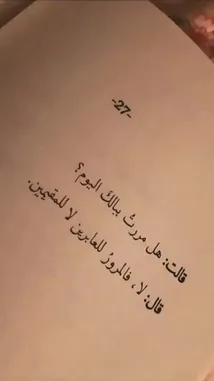 -27-
قالت: هل مررتُ ببالكَ اليوم؟
قال: لا، فالمرورُ للعابرين لا للمقيمين.